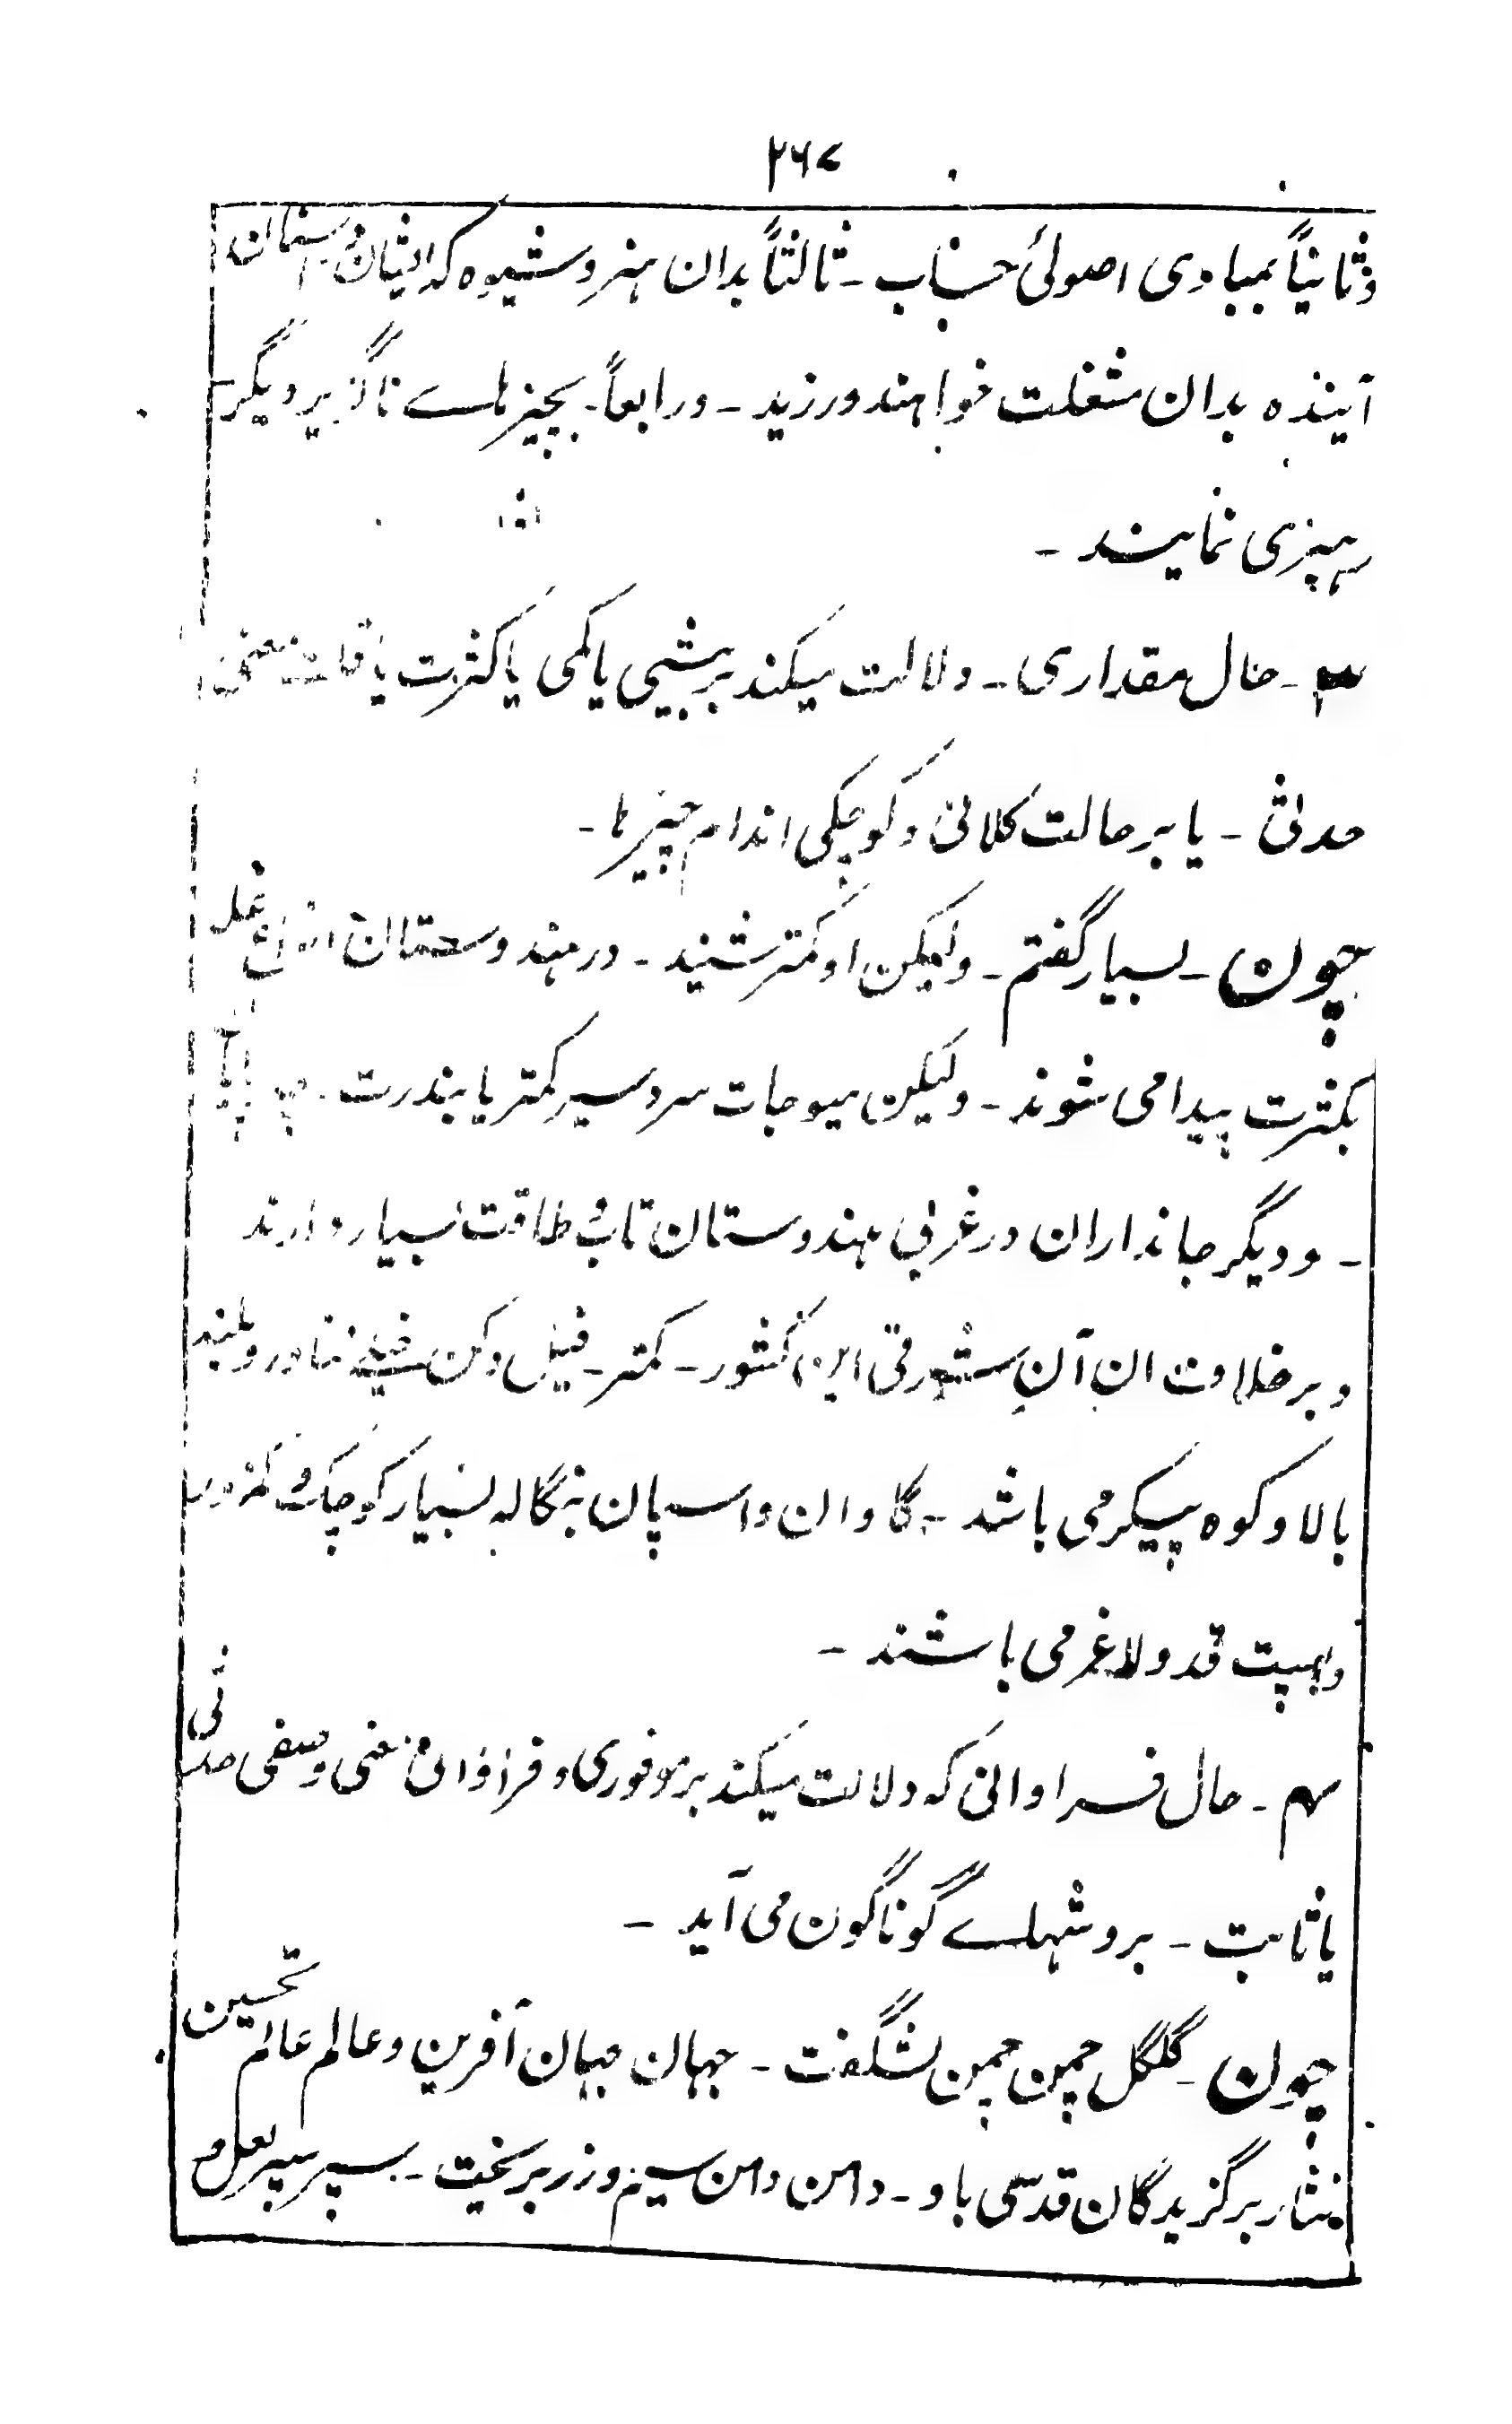 ۲۶۷
و ثانیاً بمبادی اصولئ حساب - ثالثاً بدان هنر و شیوه که ایشان
آینده بدان شغلت خواهند ورزید - و رابعاً - بچیزهاے ناگزیر دیگر
رهبزی نمایند -
۳ - حال مقداری - دلالت میکند بر بیشی یا کمی یا کثرت یا قلت معنی
حدثی - یا بر حالت کلانی و کوچکی اندام چیزها -
چون - بسیار گفتم - ولیکن او کمتر شنید - در هندوستان انواع غله
بکثرت پیدا می شوند - ولیکن میوجات سردسیر کمتر یا بندرت -
- و دیگر جانداران در غربی هندوستان تاب طاقت بسیار دارند
و بر خلاف ان آن شورقی این کشور - کمتر - فیل دکن تناور و بلند
بالا و کوه پیکر می باشد - گاوان و اسپان بنگاله بسیار کوچک و
وپست قد و لاغر می باشند -
۴ - حال فراوانی که دلالت میکند بر موفوری و فراوانی معنی وصفی حدثی
یا ثابت - بروشهاے گوناگون می آید -
چون - گلگل چمن چمن بشگفت - جهان جهان آفرین و عالم عالم تحسین
نثار برگزیدگان قدسی باد - دامن دامن سیم و زر بریخت - سپر سپر لعل و